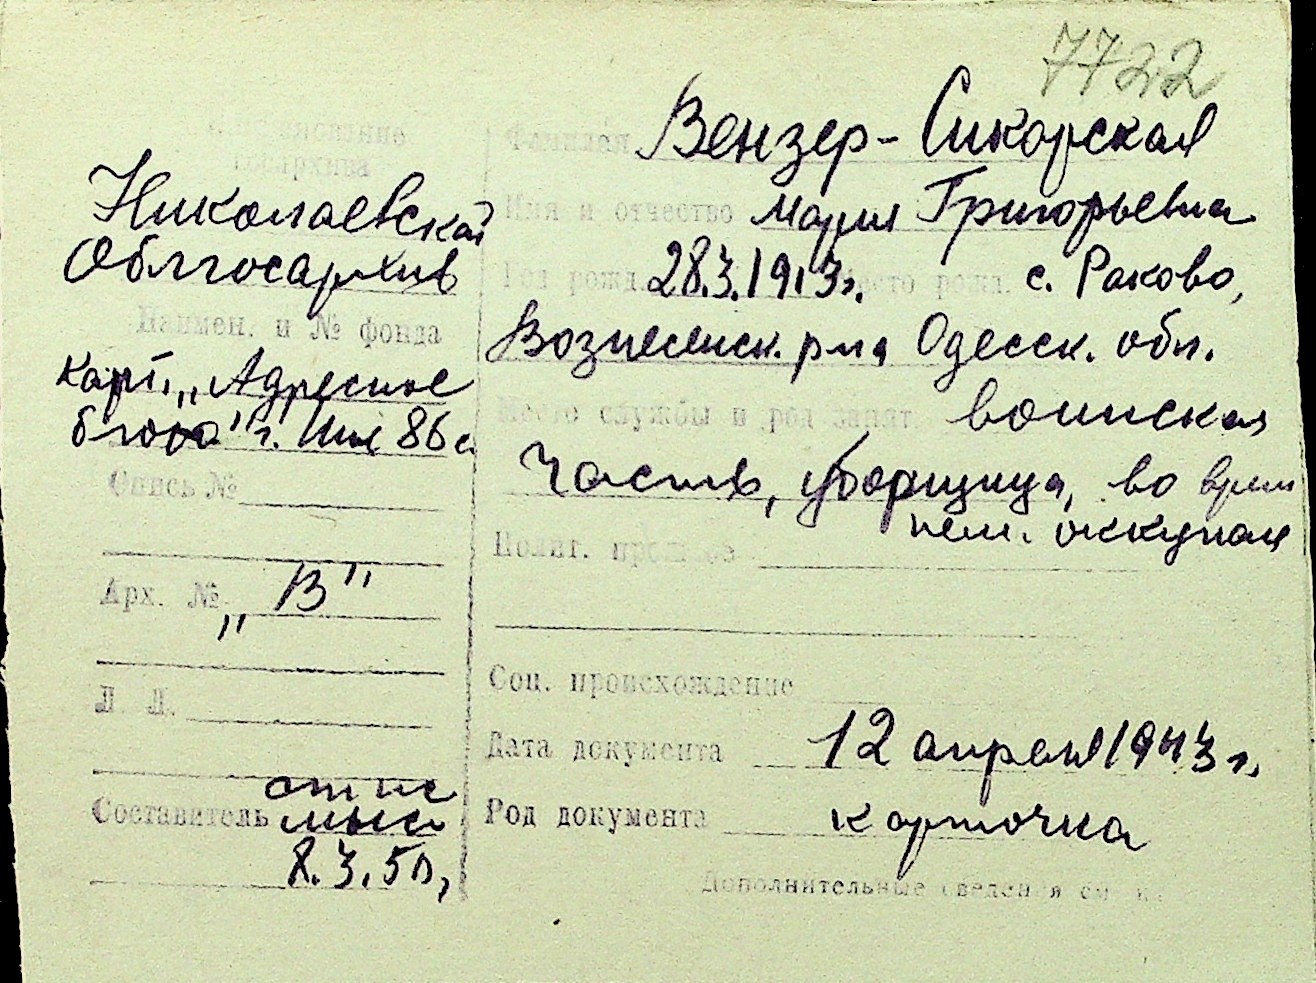 7722
Наименование
госархива
Николаевской
Облгосархив
Наимен. и № фонда
карт. „Адресное
бюро" г. Ник 86 с
Опись №
Арх. № „В"
Л. Л.
Составитель
8.3.50,
Фамилия Вензер-Сикорская
Имя и отчество Мария Григорьевна
Год рожд. 28.3.1913г. Место рожд. с. Раково,
Вознесенск. р-на Одесск. обл.
Место службы и род занят. воинская
часть, уборщица, во врем
нем. оккупац
Полит. прошлое
Соц. происхождение
Дата документа 12 апреля 1943 г.
Род документа карточка
Дополнительные сведения см. н